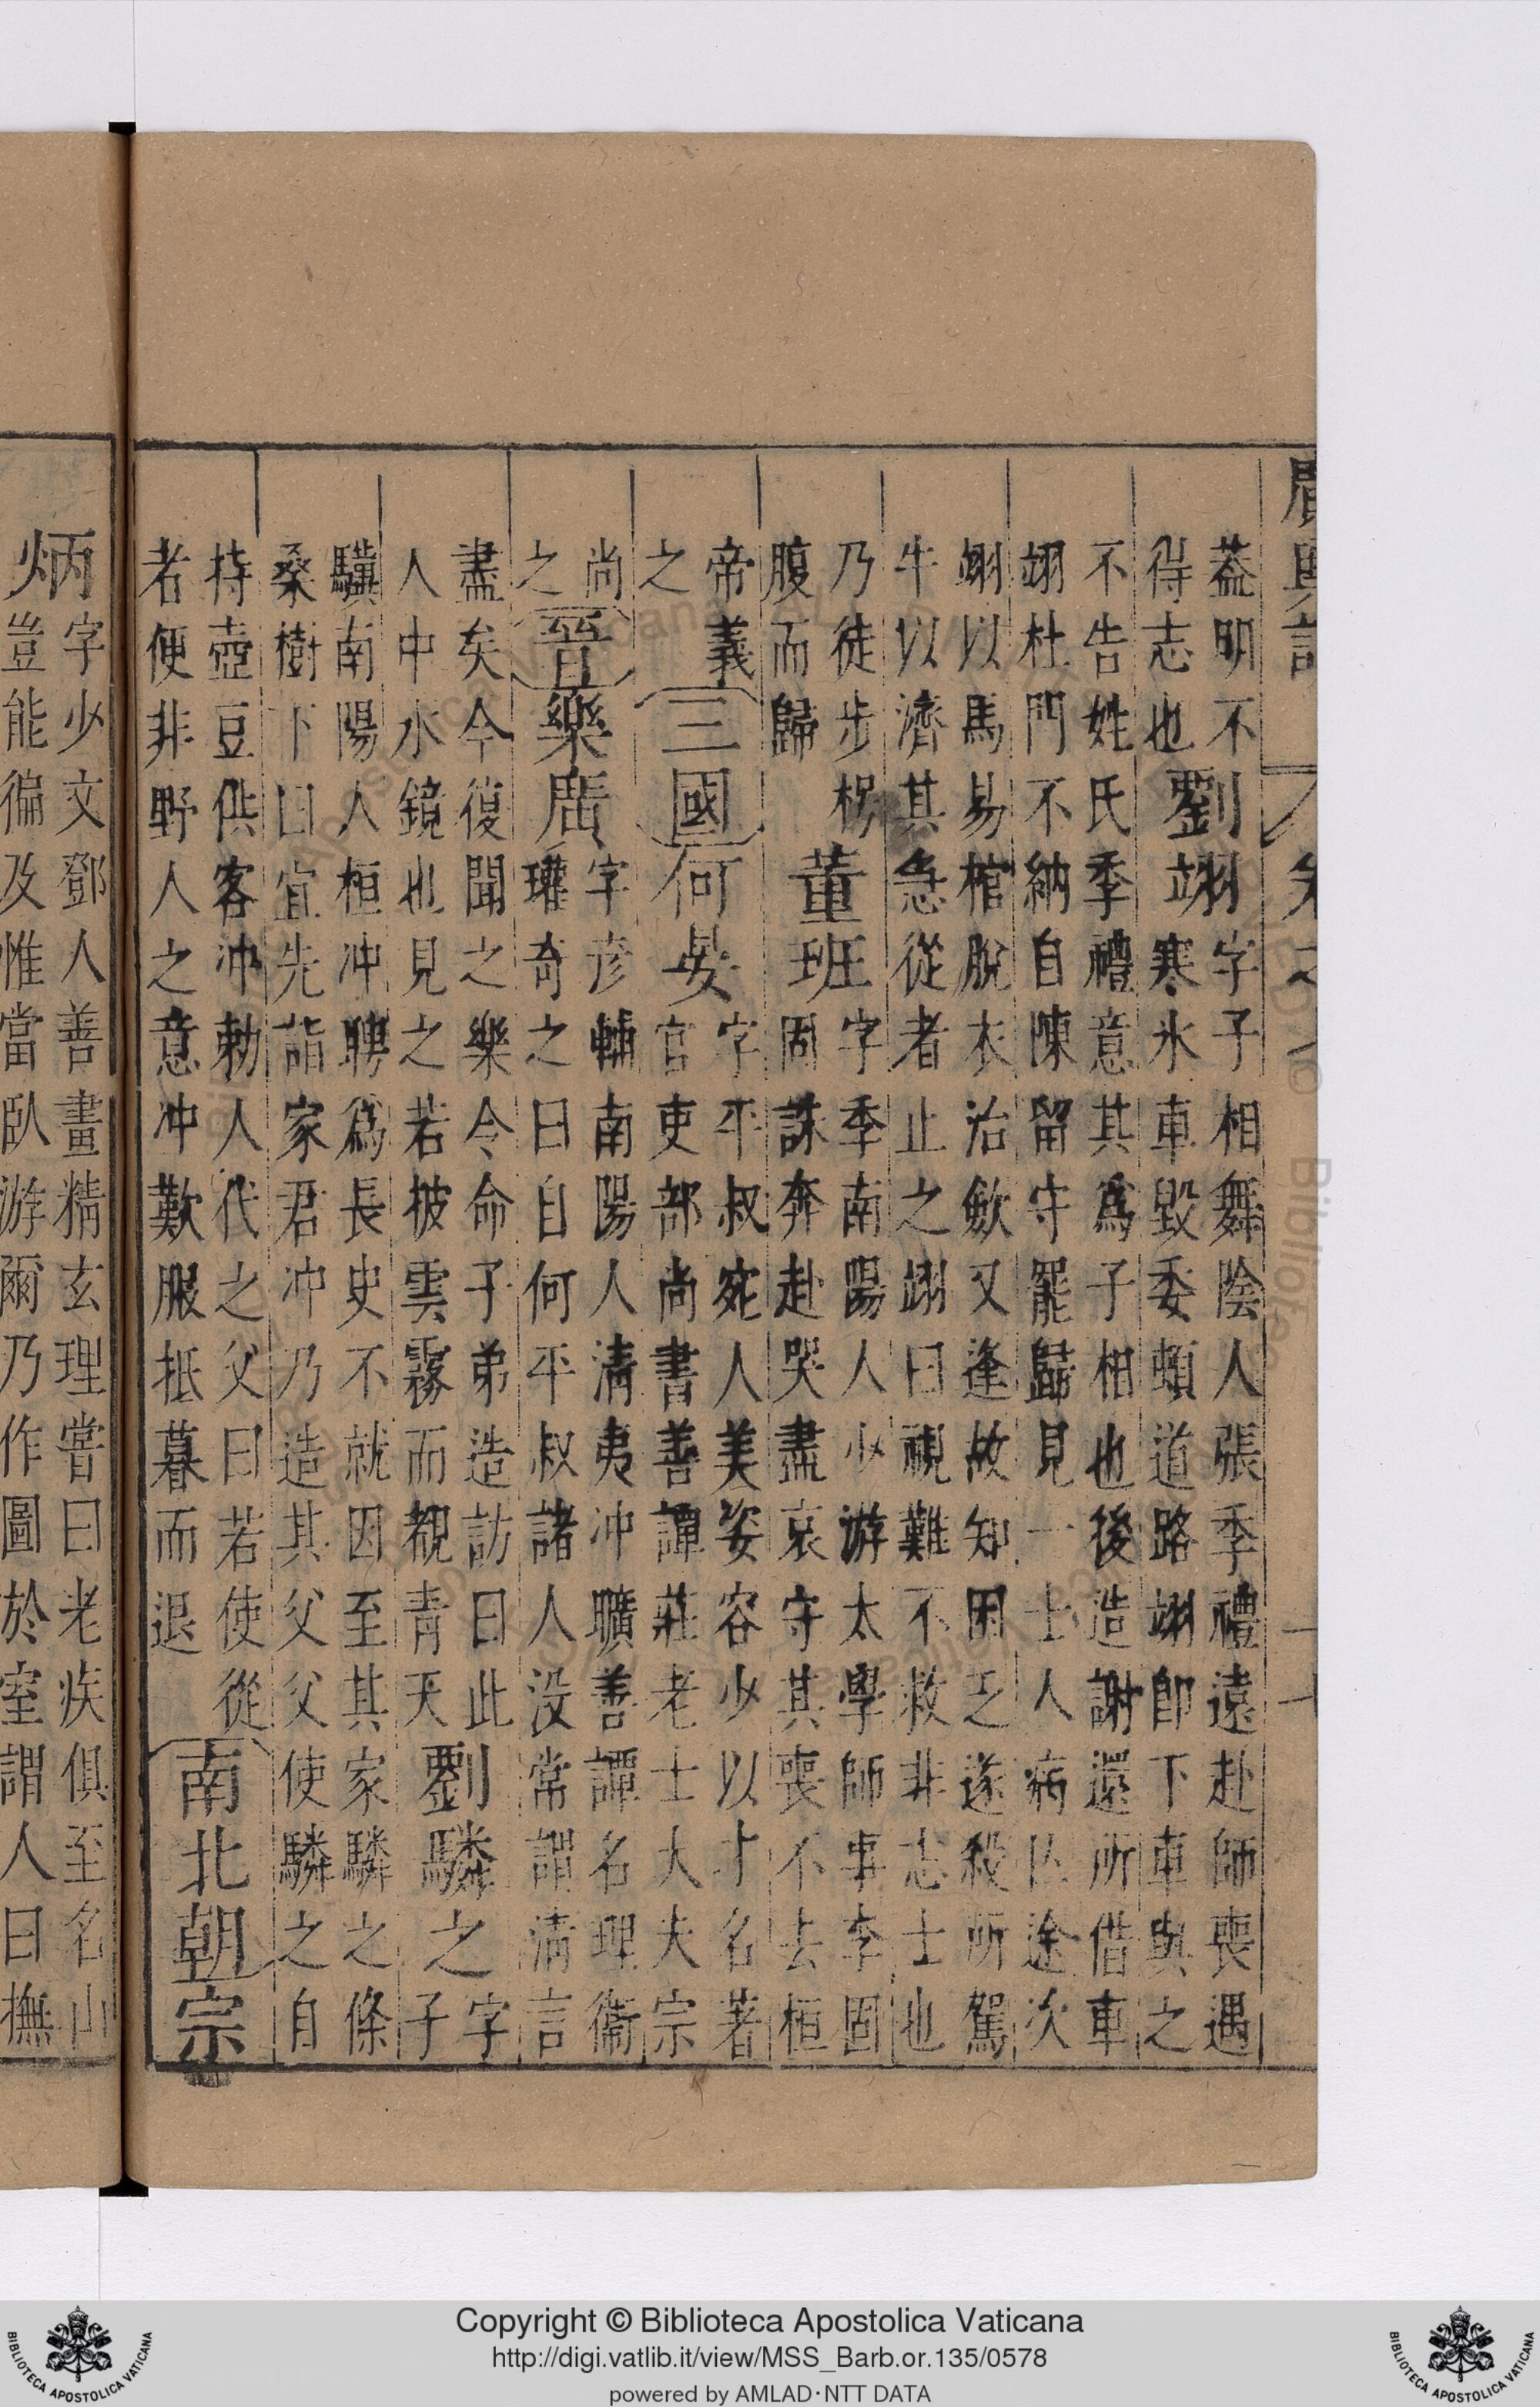 廣輿記 卷之
葢明不
得志也
劉翊
字子相舞陰人張季禮遠赴師喪遇
寒氷車毀委頓道路翊卽下車與之
不告姓氏季禮意其爲子相也後造謝還所借車
翊杜門不納自陳留守罷歸見一士人病亾途次
翊以馬易棺脫衣治斂又逢故知困乏遂殺所駕
牛以濟其急從者止之翊曰視難不救非志士也
乃徒步枵
腹而歸
董班
字季南陽人少游太學師事李固
固誅奔赴哭盡哀守其喪不去桓
帝義
之
三國
何晏
字平叔宛人美姿容少以才名著
官吏部尚書善譚莊老士大夫宗
尚
之
晉
樂廣
字彦輔南陽人清夷冲曠善譚名理衞
瓘奇之曰自何平叔諸人没常謂清言
盡矣今復聞之樂令命子弟造訪曰此
人中水鏡也見之若披雲霧而覩青天
劉驎之
字
子
驥南陽人桓冲聘爲長史不就因至其家驎之條
桑樹下曰宜先詣家君冲乃造其父父使驎之自
持壺豆供客冲勅人代之父曰若使從
者便非野人之意冲歎服抵暮而退
南北朝
宗
炳
字少文鄧人善畫精玄理嘗曰老疾俱至名山
豈能徧及惟當臥游爾乃作圖於室謂人曰撫
Copyright © Biblioteca Apostolica Vaticana
http://digi.vatlib.it/view/MSS_Barb.or.135/0578
powered by AMLAD·NTT DATA
BIBLIOTECA APOSTOLICA VATICANA
BIBLIOTECA APOSTOLICA VATICANA